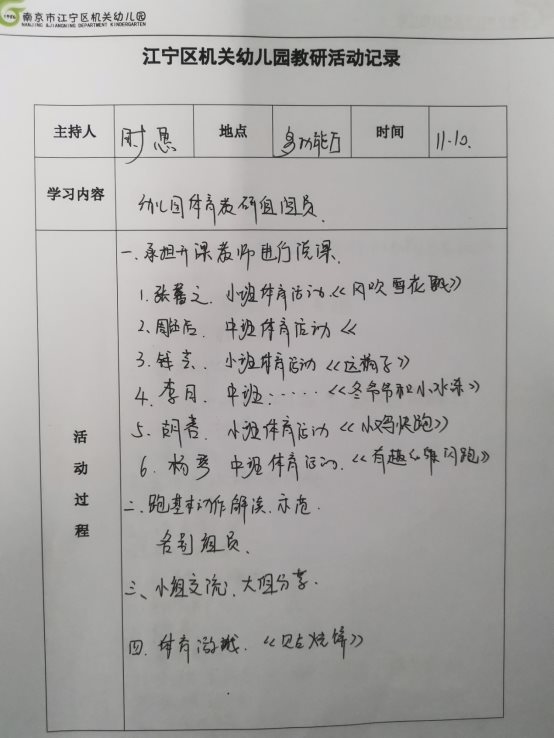 南京市江宁区机关幼儿园
NANJING JIANGNING DEPARTMENT KINDERGARTEN
江宁区机关幼儿园教研活动记录
主持人 时恩 地点 多功能厅 时间 11.10.
学习内容 幼儿园体育教研组组员.
活动过程
一.承担开课教师进行说课.
1.张 之. 小班体育活动.《风吹雪花飘》
2. 中班体育活动《
3. 小班体育活动《
4.李月. 中班:······《冬爷爷和小水滴》
5. 小班体育活动《小鸡快跑》
6.杨 中班体育活动.《有趣 跑》
二.跑基本动作解读.示范.
各别组员.
三、小组交流.大组分享.
四.体育游戏.《 烧饼》